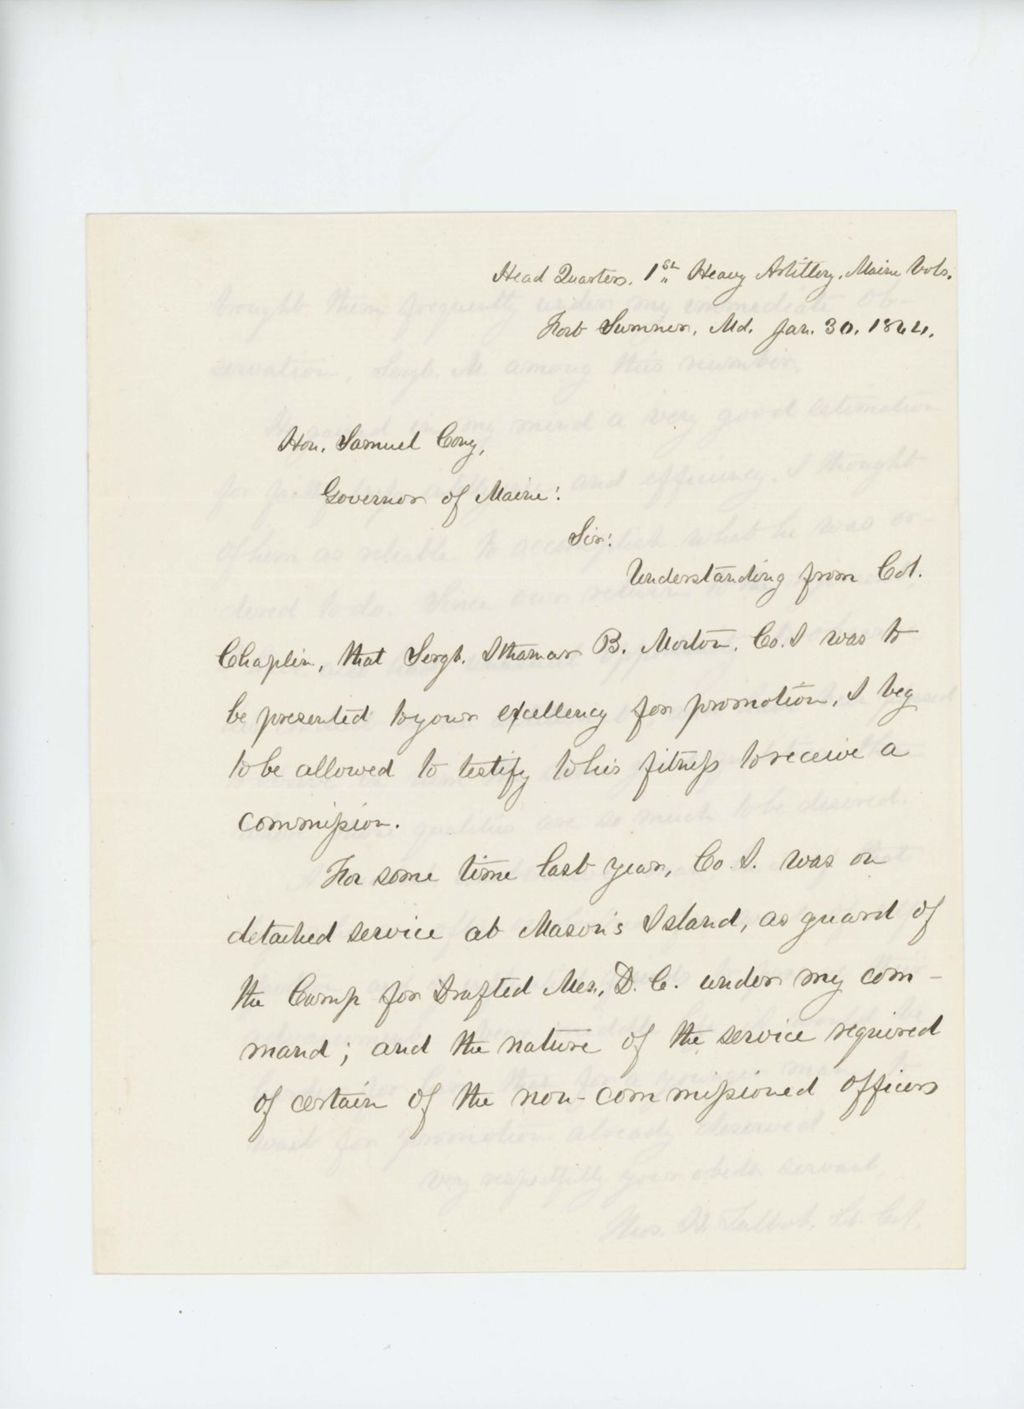 Head Quarters, 1st Heavy Artillery, Maine Vols.
Fort Sumner, Md. Jan. 30, 1864.
Hon. Samuel Cony,
Governor of Maine:
Sir:
Understanding from Col.
Chaplin, that Sergt. Ithamar B. Morton, Co. I was to
be presented to your excellency for promotion, I beg
to be allowed to testify to his fitness to receive a
commission.
For some time last year, Co. I. was on
detached service at Mason's Island, as guard of
the Camp for Drafted Men, D. C. under my com-
mand; and the nature of the service required
of certain of the non-commissioned officers